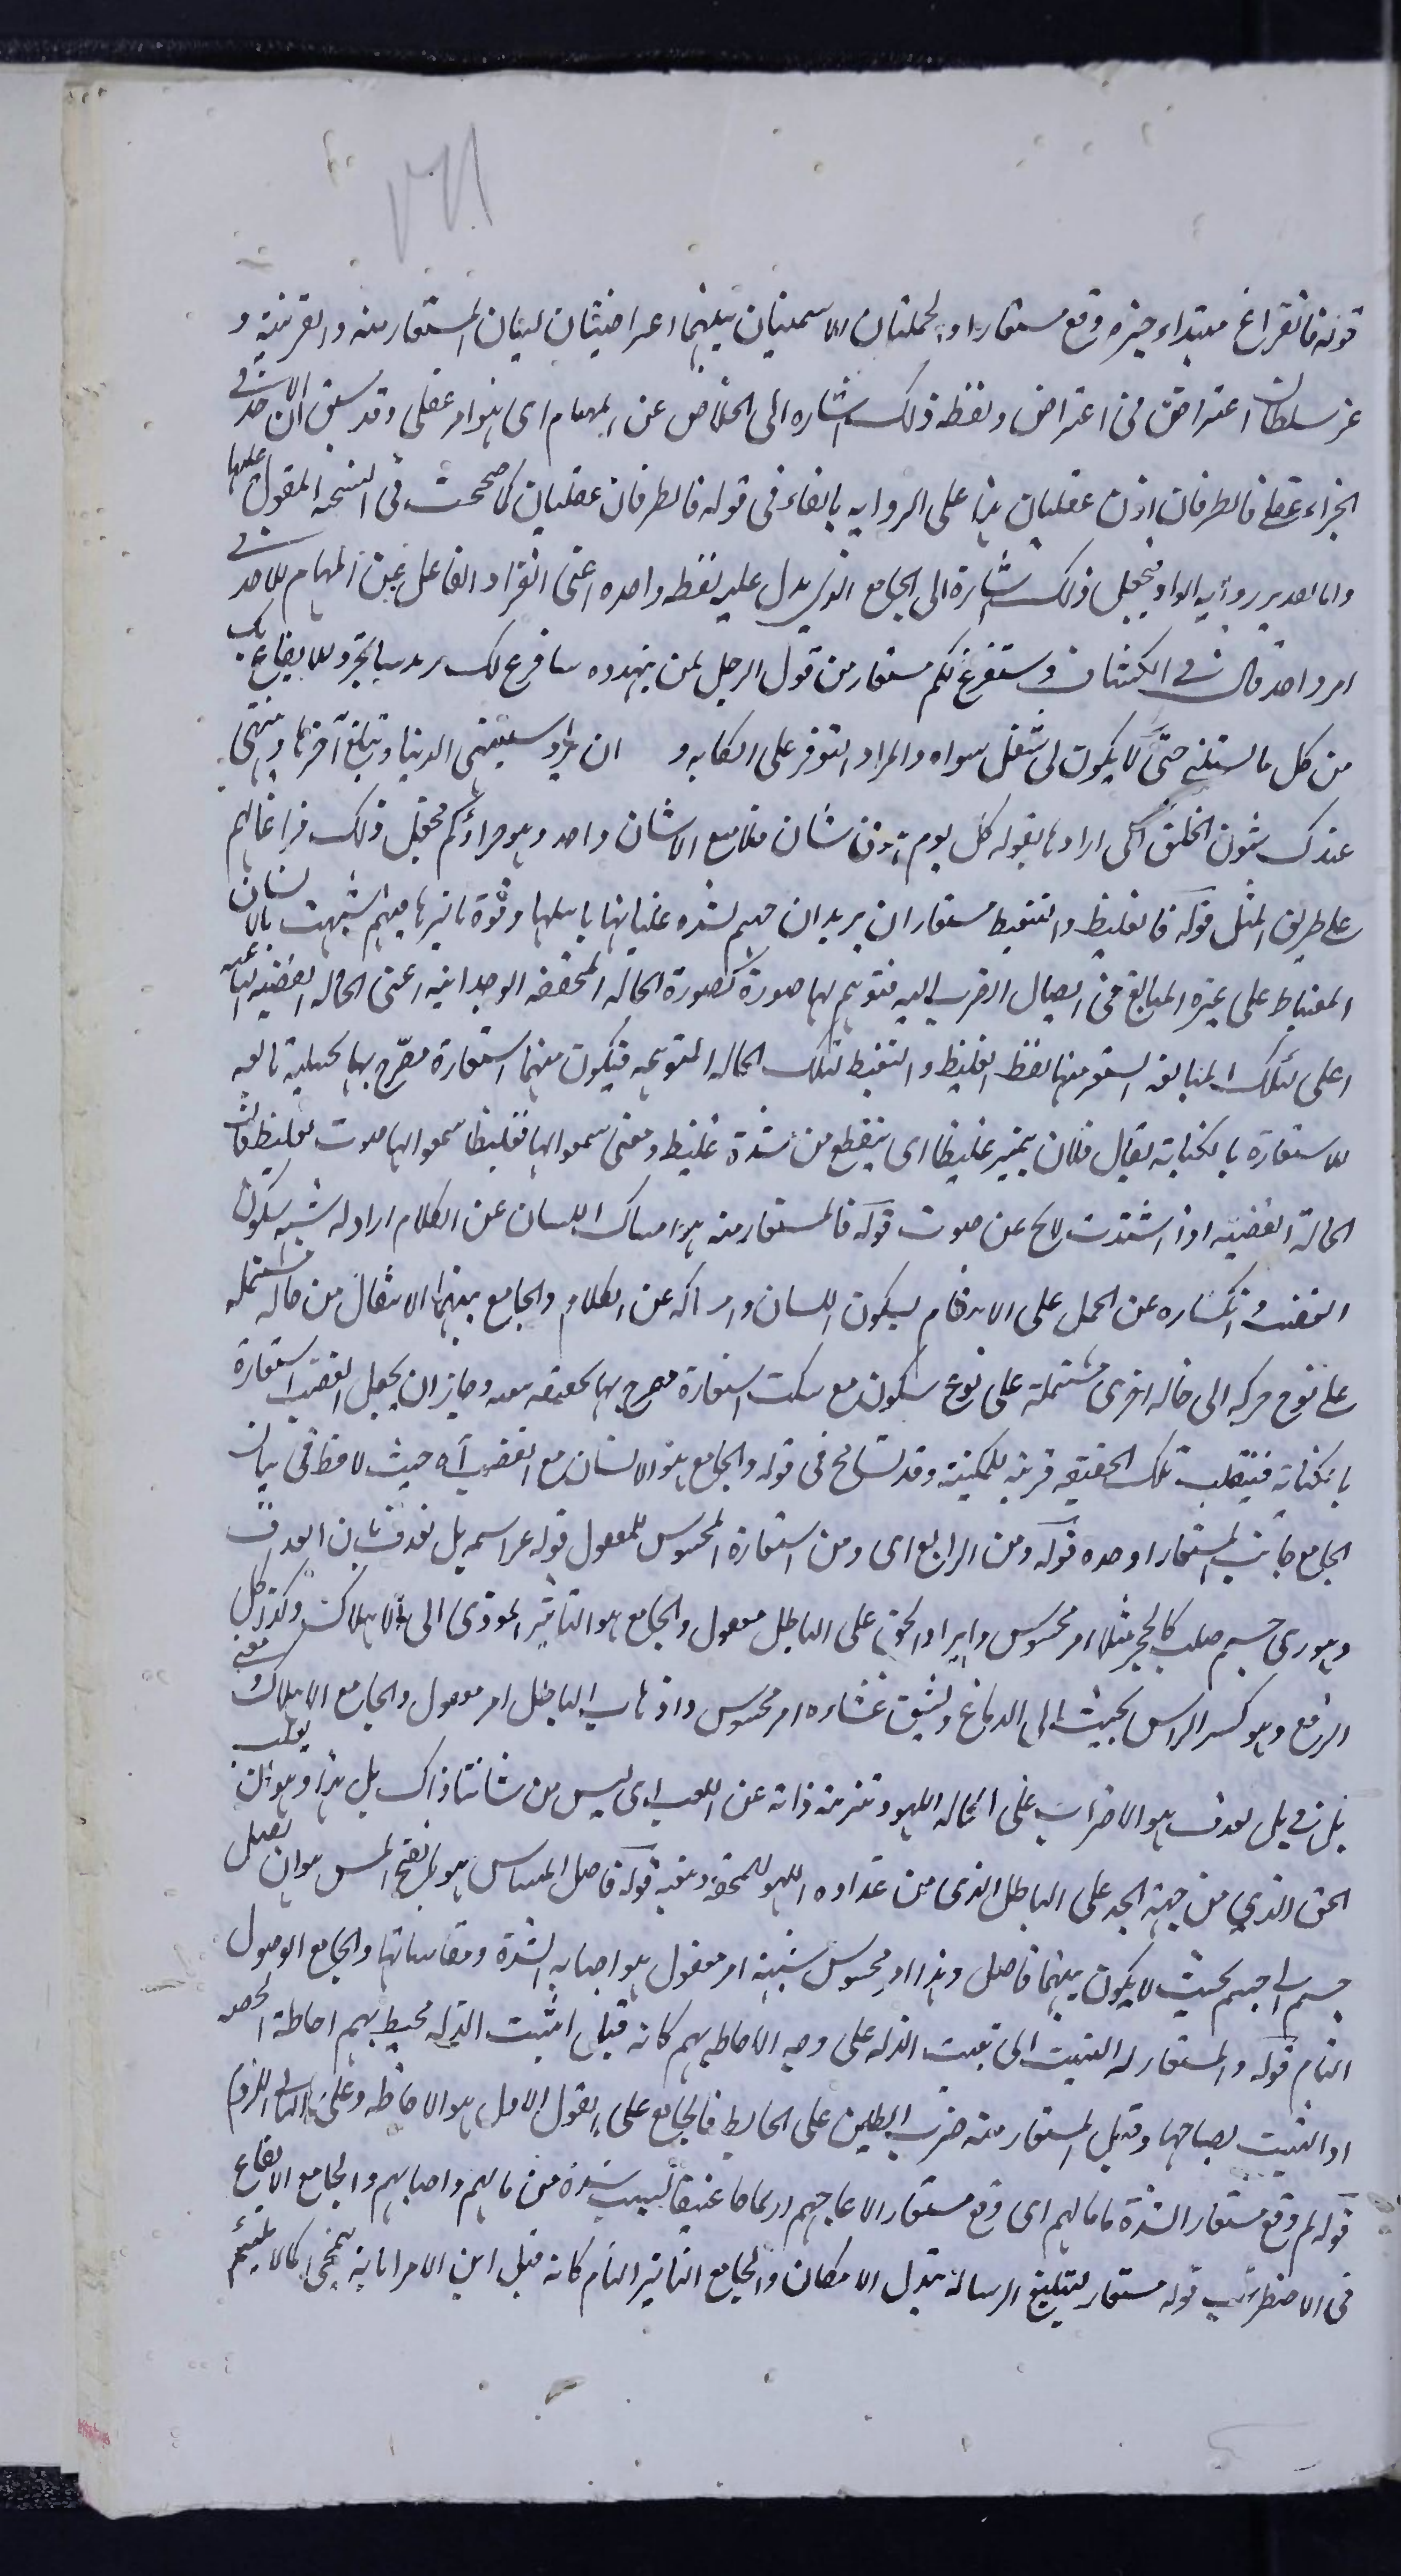 ٧٦١
قوله فالفراغ مبتداء خبره وقع مستعارا والجملتان الاسميتان بينهما اعتراضيتان لبيان المستعار منه والقرينة و
عز سلطانه اعتراض في اعتراض ولفظ ذلك اشارة الى الخلاص عن المهام اى هو امر عقلى وقد سبق ان الاخذ في
الجزاء عقلى فالطرفان اذن عقليان بناء على الرواية بالفاء في قوله فالطرفان عقليان كما صححت في النسخة المقول عليها
واما على تقدير رواية الواو فيجعل ذلك اشارة الى الجامع الذى يدل عليه لفظ واحده اعنى انفراد الفاعل عن المهام للاخذ في
امر واحد قال في الكشاف سنفرغ لكم مستعار من قول الرجل لمن يتهدده سافرغ لك يريد سأتجرد للايقاع بك
من كل ما يشغلني حتى لا يكون لى شغل سواه والمراد التوفر على النكاية و ان يراد ستنتهى الدنيا وتبلغ آخرها وينتهى
عند ذلك شئون الخلق التى ارادها بقوله كل يوم هو في شان فلا يبقى الا شان واحد وهو جزاؤكم فجعل ذلك فراغا لهم
على طريق المثل قوله فالتغيظ والتغيظ مستعار ان يريد ان جهنم لشدة غليانها باهلها وقوة تاثيرها فيهم شبهت بالانسان
المغتاظ على غيره المبالغ في ايصال الضرر اليه فتوهم لها صورة كصورة الحالة المحققة الوجدانية اعنى الحالة الغضبية الباعثة
على تلك المبالغة استعير منها لفظ الغيظ والتغيظ لتلك الحالة المتوهمة فيكون منهما استعارة مصرح بها تخييلية تابعة
للاستعارة بالكناية يقال فلان يتميز غيظا اى يتقطع من شدة غيظه ومعنى سمعوا لها تغيظا سمعوا لها صوت تغيظ فان
الحالة الغضبية اذا اشتدت لاح عن صوت قوله فالمستعار منه هو امساك اللسان عن الكلام اراد انه شبه سكون
الغضب وانكساره عن الحمل على الانتقام بسكون اللسان وامساكه عن الكلام والجامع بينهما الانتقال من حاله مشتملة
على نوع حركة الى حاله اخرى مشتملة على نوع سكون مع سكت استعارة مصرح بها تحقيقية تبعية وجاز ان يجعل الغضب استعارة
بالكناية فينقلب تلك الحقيقية قرينة للمكنية وقد تسامح في قوله والجامع هو الانسان مع الغضب آه حيث لاحظ في بيان
الجامع جانب المستعار وحده قوله ومن الرابع اى ومن استعارة المحسوس للمعقول قوله عز اسمه بل نقذف فان القذف
وهو رمى جسم صلب كالحجر مثلا امر محسوس وايراد الحق على الباطل معقول والجامع هو التأثير المؤدى الى الاهلاك وكذا كل
الدمغ وهو كسر الراس بحيث الى الدماغ وشق غشائه امر محسوس واذهاب الباطل امر معقول والجامع الاهلاك ومعنى
بل في بل نقذف هو الاضراب على الحالة اللهو وتنزيه ذاته عن اللعب اى ليس من شاننا ذاك بل هذا وهو ان يغلب
الحق الذى من جهته الجد على الباطل الذى من عداوه اللهو للمحقه ويفنيه قوله فاصل المساس هو بالفتح المس هو ان يتصل
جسم الى جسم بحيث لا يكون بينهما فاصل وهذا امر محسوس شبه به امر معقول هو اصابة الشدة ومقاساتها والجامع الوصول
التام قوله والمستعار له التثبيت اى تثبيت الذلة على وجه الاحاطة بهم كانه قيل اثبتت الذلة محيطة بهم احاطة الخيمة
او اثبتت لصاحبها وقبل المستعار منه ضرب الطين على الحايط فالجامع على القول الاول هو الاحاطة وعلى الثاني اللزوم
قوله لم وقع مستعار الشدة ما نالهم اى وقع مستعارا لازعاجهم ازعاجا عنيفا بسبب شدة من نالهم واصابهم والجامع الايقاع
في الاضطراب قوله مستعار لتبليغ الرسالة بقدر الامكان والجامع التاثير التام كانه قيل ابن الامر ابانة لا تمحى كما لا يلتئم